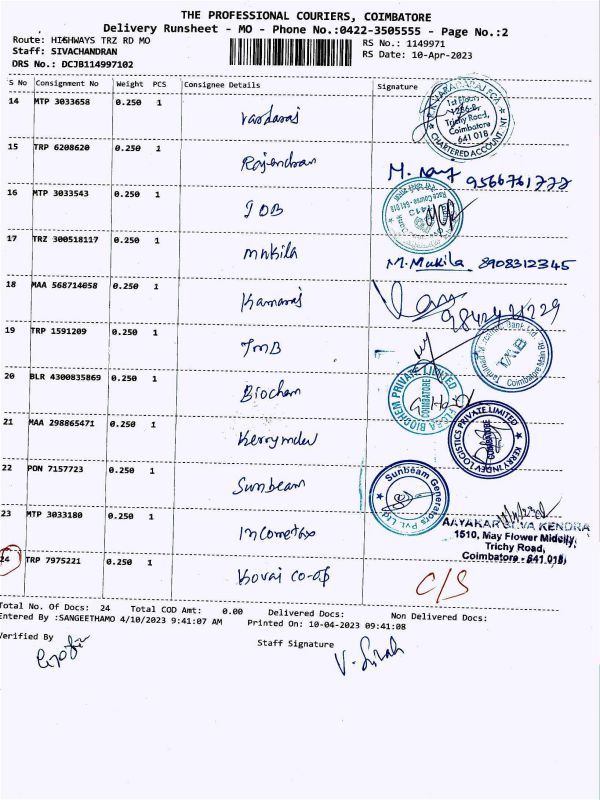 THE PROFESSIONAL COURIERS, COIMBATORE
Delivery Runsheet - MO - Phone No.:0422-3505555 - Page No.:2
Route: HIGHWAYS TRZ RD MO
RS No.: 1149971
Staff: SIVACHANDRAN
RS Date: 10-Apr-2023
DRS No.: DCJB114997102
S No Consignment No Weight PCS Consignee Details Signature
14 MTP 3033658 0.250 1 Vardaraj
1st Floor,
Trichy Road,
Coimbatore
641 018
CHARTERED ACCOUNTANT
15 TRP 6208620 0.250 1 Rajendran
9566761777
16 MTP 3033543 0.250 1 IOB
17 TRZ 300518117 0.250 1 Mukila M. Mukila 8908312345
18 MAA 568714058 0.250 1 Kamaraj
19 TRP 1591209 0.250 1 TMB
TMB
Coimbatore Main Br.
20 BLR 4300835869 0.250 1 Biochem
BIOCHEM PRIVATE LIMITED
COIMBATORE
21 MAA 298865471 0.250 1 Kerryindev
KERRY INDEV LOGISTICS PRIVATE LIMITED
COIMBATORE
22 PON 7157723 0.250 1 Sunbeam
Sunbeam Generators Pvt. Ltd.
23 MTP 3033180 0.250 1 Incometax
AAYAKAR SEVA KENDRA
1510, May Flower Midcity,
Trichy Road,
Coimbatore - 641 018.
24 TRP 7975221 0.250 1 Kovai co-op C/S
Total No. Of Docs: 24 Total COD Amt: 0.00 Delivered Docs: Non Delivered Docs:
Entered By :SANGEETHAMO 4/10/2023 9:41:07 AM Printed On: 10-04-2023 09:41:08
Verified By
Staff Signature